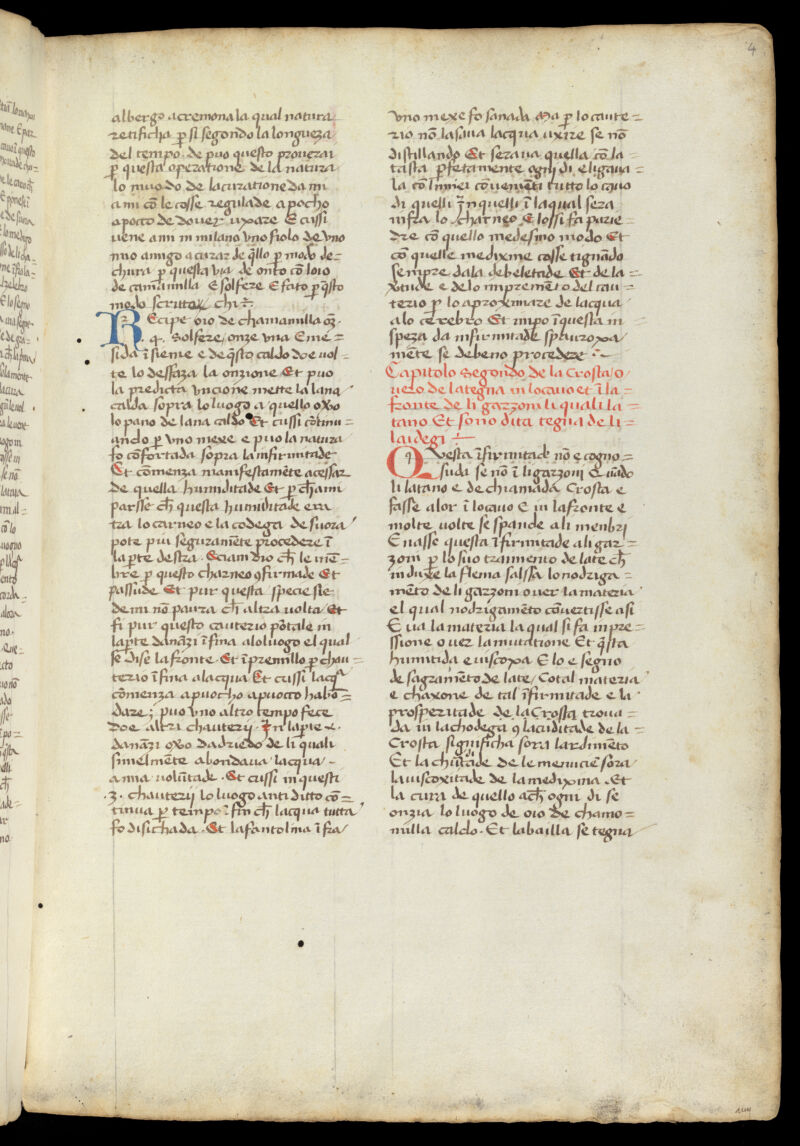 4
albergo a cremona la qual natura
retificha ꝑ si segondo la longueza
del tempo. de puo questo prouerai
ꝑ questa operatione de la natura
lo muodo de la curatione da mi
a mi cō le cosse regulade a pocho
a pocco de douer uxare E cussi
uene a mi in milano vno fiolo de vno
mio amigo a curar de q̄llo ꝑ modo de
chura ꝑ questa uia de onto cō loio
de camamilla E solfere E fato ꝑ q̄sto
modo scritto chi
Recipe oio de chamamilla
solfere onze vna E me
sida īsieme e de q̄sto caldo doe uol
te lo desfaza la onzione Et puo
la predicta vncione mette la lana
calda sopra lo luogo a quello oxo
lo pano de lana caldo Et cussi cōtinu=
ando ꝑ vno mexe e puo la natura
fo cōfortada sopra la infirmitade
Et comenza manifestamēte a cessar
de quella humiditade Et ꝑ ch̄ a mi
parsse ch̄ questa humiditade era
tra lo carneo e la codega de fuora
pote piu seguramēte procedere ī
la ꝑte destra. Eciamdio ch̄ le mē=
bre ꝑ questo charneo ꝯfirmade Et
passude Et pur questa specie ste
de mi nō paura ch̄ altra uolta Et
fi pur questo cauterio portale in
la ꝑte dananzi īfina a lo luogo el qual
se dise la fronte. Et ī premillo ꝑ chau=
terio ī fina a lacqua Et cussi lacq̄
comenza a puocho a puocco habō=
dare; puo vno altro tempo fece
doe altri chauterij. In la ꝑte
dananzi oxo da driedo de li quali
simelmēte abondaua lacqua
a mia volūtade. Et cussi in questi
.3. chauterij lo luogo anti ditto cō=
tinua ꝑ tempo ī fin ch̄ lacqua tutta
fo disichada. Et la fantolina ī fra
vno mexe fo sanada. Ma ꝑ lo caute=
rio nō lasaua lacqua uxire se nō
distillando Et seraua quella cō la=
tasta ꝑfetamente ogni di e ligaua=
la cō linimēti cōuenienti tutto lo cauo
di quelli ī la qual sera
infra lo charneo E lossi fa parie=
dre cō quello medesimo modo Et
cō quelle medixime cosse tignando
sempre da la debeletade Et de la=
xitude e de lo impremēto del cau=
terio ꝑ lo aproximare de lacqua
a lo cerebro Et inpo ī questa in
speza da infirmitade
mēte se debeno procedere
Capitolo Segondo de la Crosta o
uero de la tegna in lo cauo et ī la=
fronte de li garzoni li quali la=
tano Et sono dita tegna de li
laidegi
Questa ī firmitade nō e cogno=
suda se nō ī li garzoni E quādo
li latano e de chiamada Crosta e
fasse a lor ī lo cauo E in la fronte e
molte uolte se spande a li menbri
E nasse questa īfirmitade a li gar=
zoni ꝑ lo suo tramento de late ch̄
induxe la flema salssa lo nodriga=
mēto de li garzoni ouer la materia
el qual nodrigamēto cōuertisse asi
E ua la materia la qual si fa inpre=
ssione o uer la mutatione Et q̄sta
humitida e uiscoxa E lo e segno
de sagramēto de late / Cotal materia
e chaxone de tal īfirmitade e la
prosperitade de la Crosta troua=
da in la chodega ꝯ laciditade de la=
Crosta significha sora lardimēto
Et la chiūtade de le menucie sora
la uiscoxitade de la medixina. Et
la cura de quello a ch̄ ogni di se
onzia lo luogo de oio de chamo=
milla caldo. Et la bailla se tegna